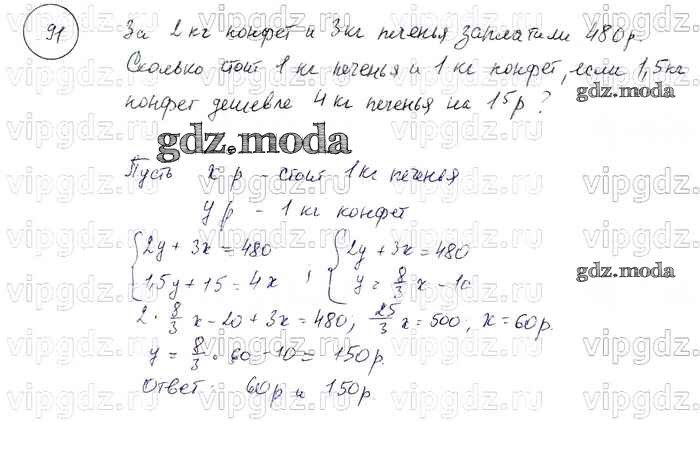 91
За 2 кг конфет и 3 кг печенья заплатили 480 р.
Сколько стоит 1 кг печенья и 1 кг конфет, если 1,5 кг
конфет дешевле 4 кг печенья на 15 р?
gdz.moda
Пусть x р - стоит 1 кг печенья
y р - 1 кг конфет
{2y + 3x = 480 {2y + 3x = 480
{1,5y + 15 = 4x ; {y = 8/3 x - 10
2 · 8/3 x - 20 + 3x = 480; 25/3 x = 500; x = 60 р.
y = 8/3 · 60 - 10 = 150 р.
Ответ: 60 р и 150 р.
gdz.moda
gdz.moda
vipgdz.ru vipgdz.ru vipgdz.ru vipgdz.ru